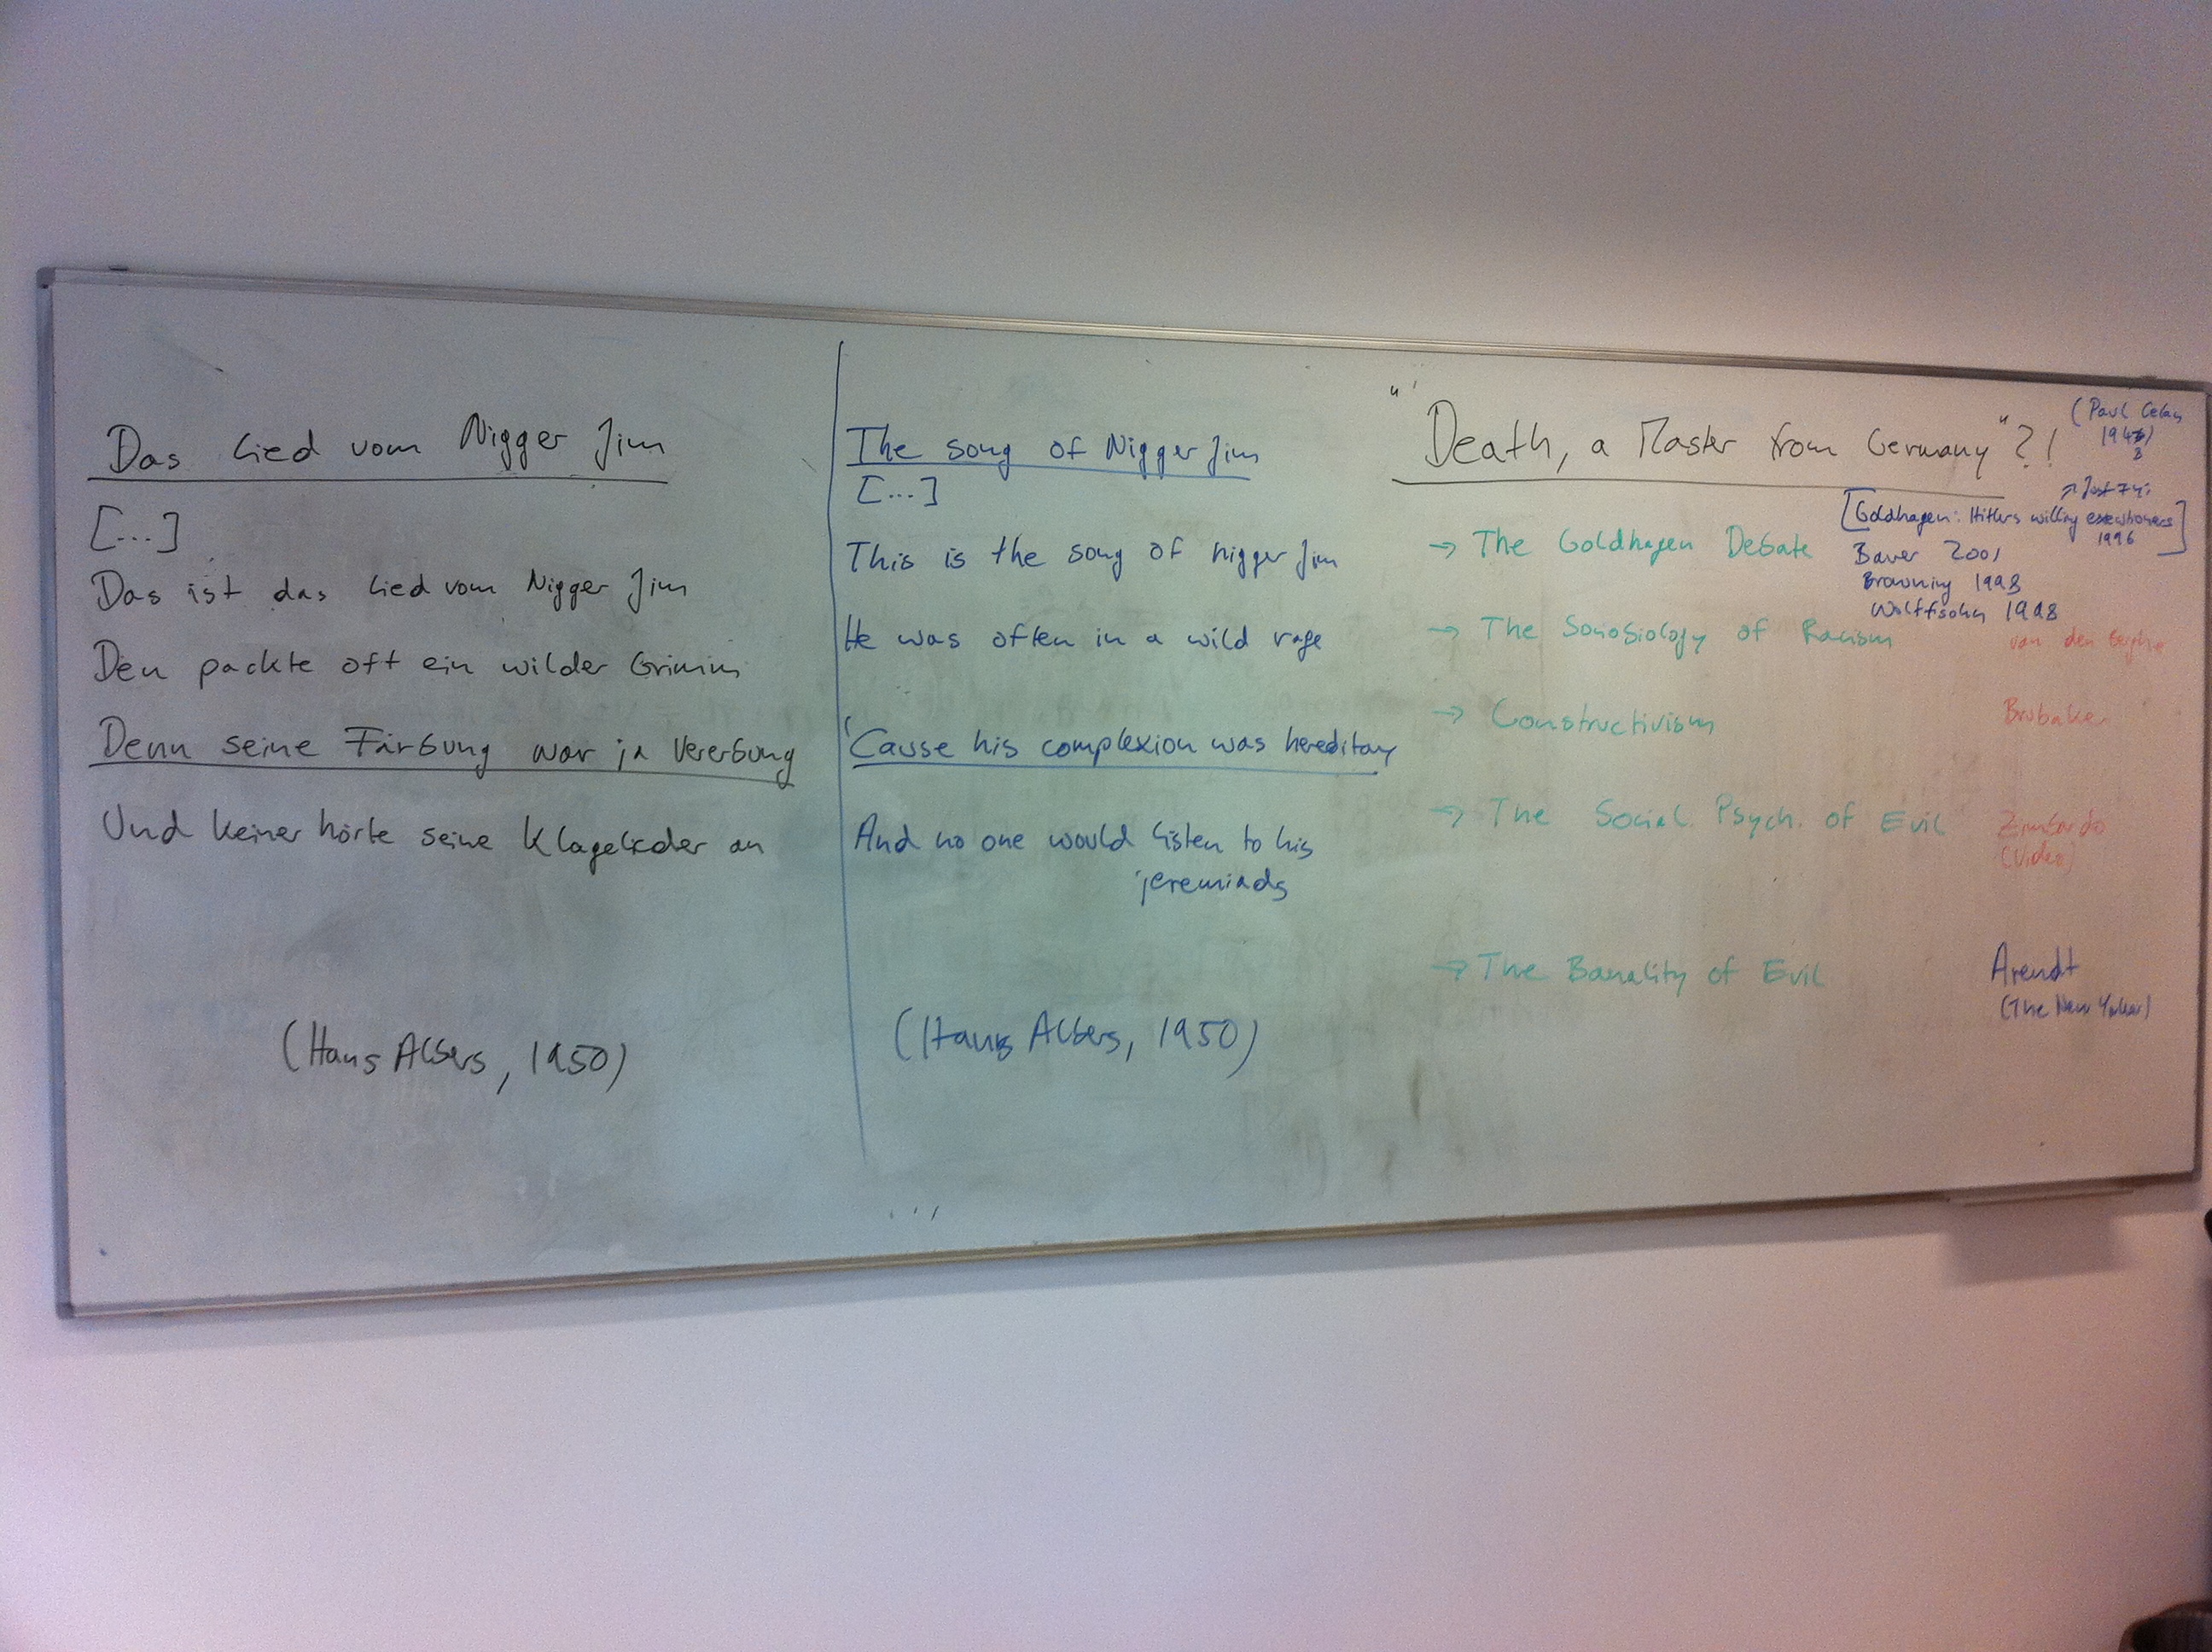 Das Lied vom Nigger Jim
[...]
Das ist das Lied vom Nigger Jim
Den packte oft ein wilder Grimm
Denn seine Färbung war ja Vererbung
Und keiner hörte seine Klagelieder an
(Hans Albers, 1950)
The song of Nigger Jim
[...]
This is the song of nigger Jim
He was often in a wild rage
'Cause his complexion was hereditary
And no one would listen to his
jeremiads
(Hans Albers, 1950)
"Death, a Master from Germany"?!
(Paul Celan
→ The Goldhagen Debate
[Goldhagen: Hitlers willing executioners
1996]
Bauer 2001
Browning 1998
Wolffsohn 1998
→ The Sociobiology of Racism van den Berghe
→ Constructivism Brubaker
→ The Social. Psych. of Evil Zimbardo
(Video)
→ The Banality of Evil Arendt
(The New Yorker)